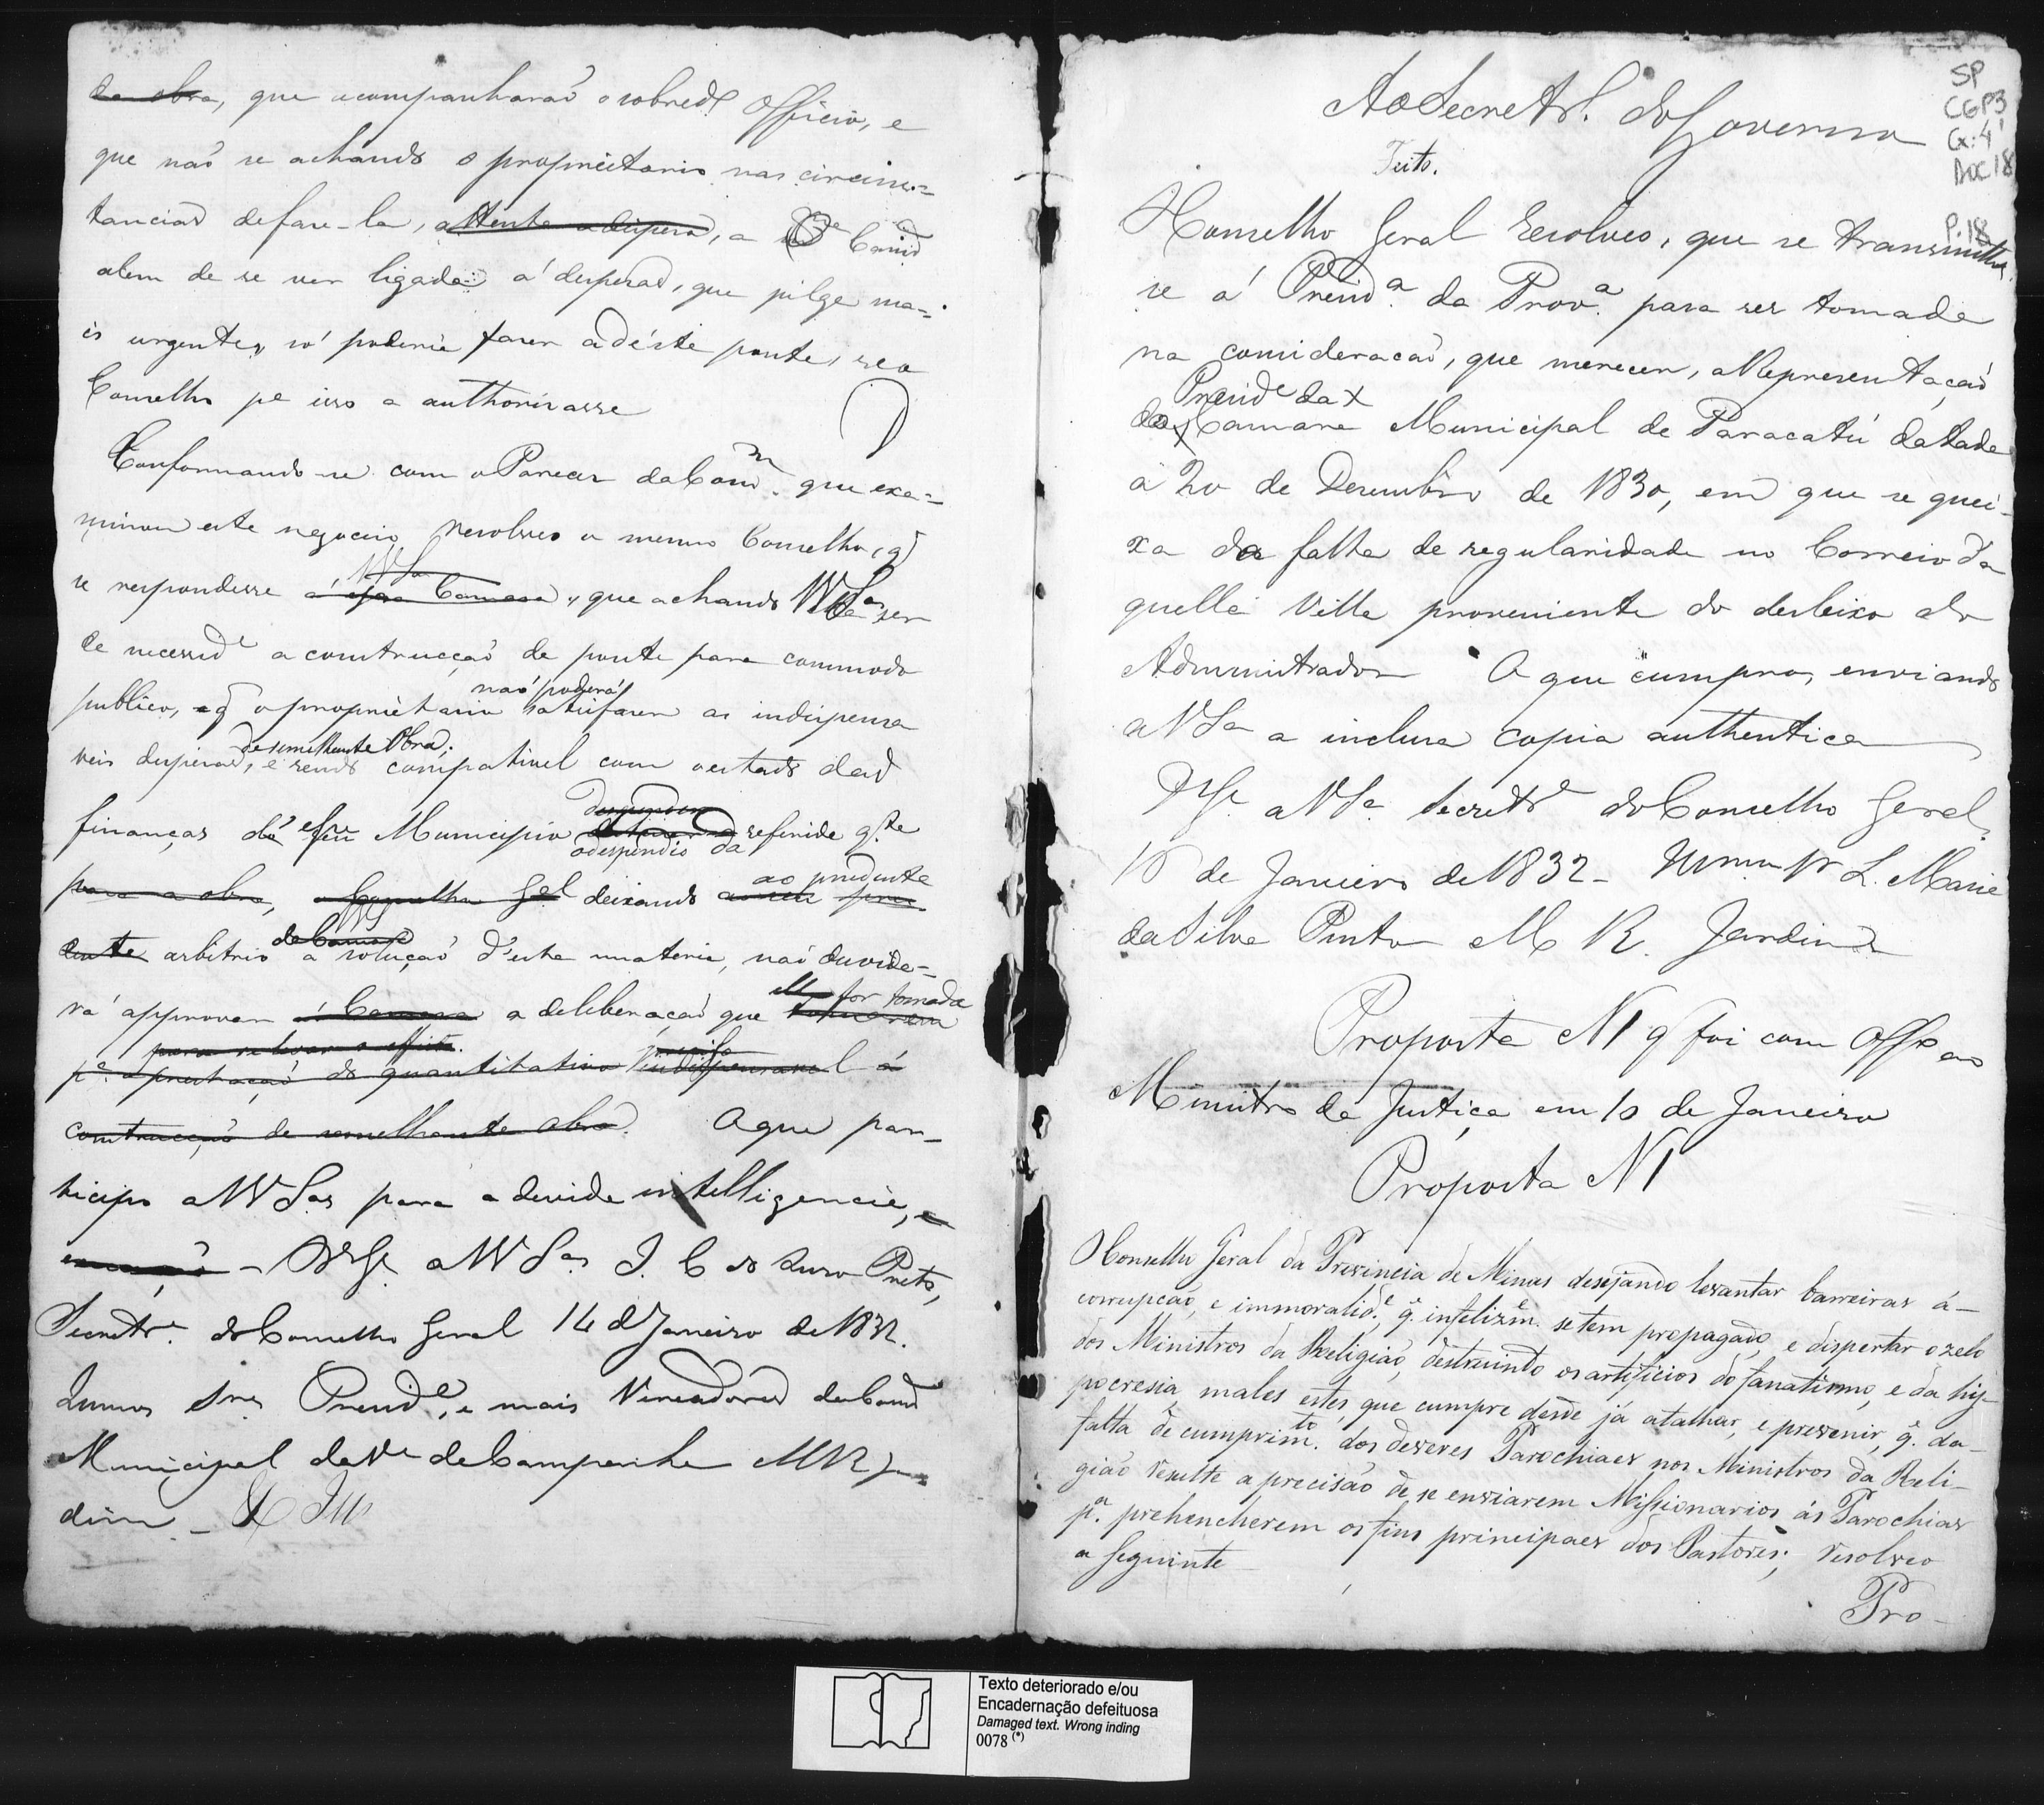 da obra, que acompanharaõ o sobred.º Officio, e
que naõ se achando o proprietario nas circuns=
tancias de faze-la, attenta a despeza, a Cam.ª
alem de se ver ligada á despezas, que julga ma=
is urgentes, só poderia fazer a d'éste ponte, se o
Conselho p.ª isso a authorizasse
Conformando-se com o Parecer da Com.m que exa=
minou este negocio resolveo o mesmo Conselho, q
se respondesse á essa Camara VV Sas, que achando VV Sas ser
de necessid.e a construcçaõ da ponte para commodo
publico, e q o proprietario naõ poderá satisfazer as indispensa
veis despezas de semelhante Obra, e sendo compativel com o estado das
finanças desse Municipio o despendio da referida q.te
para a obra, o Conselho G.el deixando ao prudente
dente arbitrio da Camara a soluçaõ d'esta materia, naõ duvida=
rá approvar á Camara a deliberaçaõ que for tomada
para se levar a effeito.
p.ª a prestaçaõ do quantitativo indispensavel á
construcçaõ de semelhante obra. O que par=
ticipo a VV Sas para a devida intelligencia, e
execuçaõ - D.s G.e a VV S.as I. C. do Ouro Preto,
Secretr.ª do Conselho Geral 14 de Janeiro de 1832.
Illmos Snrs Presid.e, e mais Vereadores da Cam.ª
Municipal da V.ª da Campanha M R Jar
dim
Ao Secretr.º do Governo
Feito.
O Conselho Geral resolveo, que se transmitta
se á Presid.ª da Prov.ª para ser tomada
na consideracaõ, que merecer, a Representaçaõ
do Presid.e da Camara Municipal de Paracatú datada
a 20 de Dezembro de 1830, em que se quei=
xa da falta de regularidade no Correio da
quella Villa proveniente do desleixo do
Administrador O que cumpro, enviando
a V S.ª a incluza copia authentica
D.s G.e a V S.ª Secretr.ª do Conselho Geral
16 de Janeiro de 1832 - Illmo Sr L. Maria
da Silva Pinto M R. Jardim
Proposta N 1 q foi com Off.º ao
Ministro da Justiça em 10 de Janeiro
Proposta N 1
O Conselho Geral da Provincia de Minas desejando levantar barreiras á-
corrupçaõ, e immoralid.e, q. infelizm.e se tem propagado, e dispertar o zelo
dos Ministros da Religiaõ, destruindo os artificios do fanatismo, e da hy-
pocresia, males estes, que cumpre desde já atalhar, e prevenir, q. da-
falta de cumprim.to dos deveres Parochiaes nos Ministros da Reli-
giaõ resulte a precisaõ de se enviarem Missionarios ás Parochias
p.ª prehencherem os fins principaes dos Pastores; resolveo
a seguinte
Pro-
SP
CGP3
Cx: 4
Doc 18
P. 18
Texto deteriorado e/ou
Encadernação defeituosa
Damaged text. Wrong inding
0078 (*)